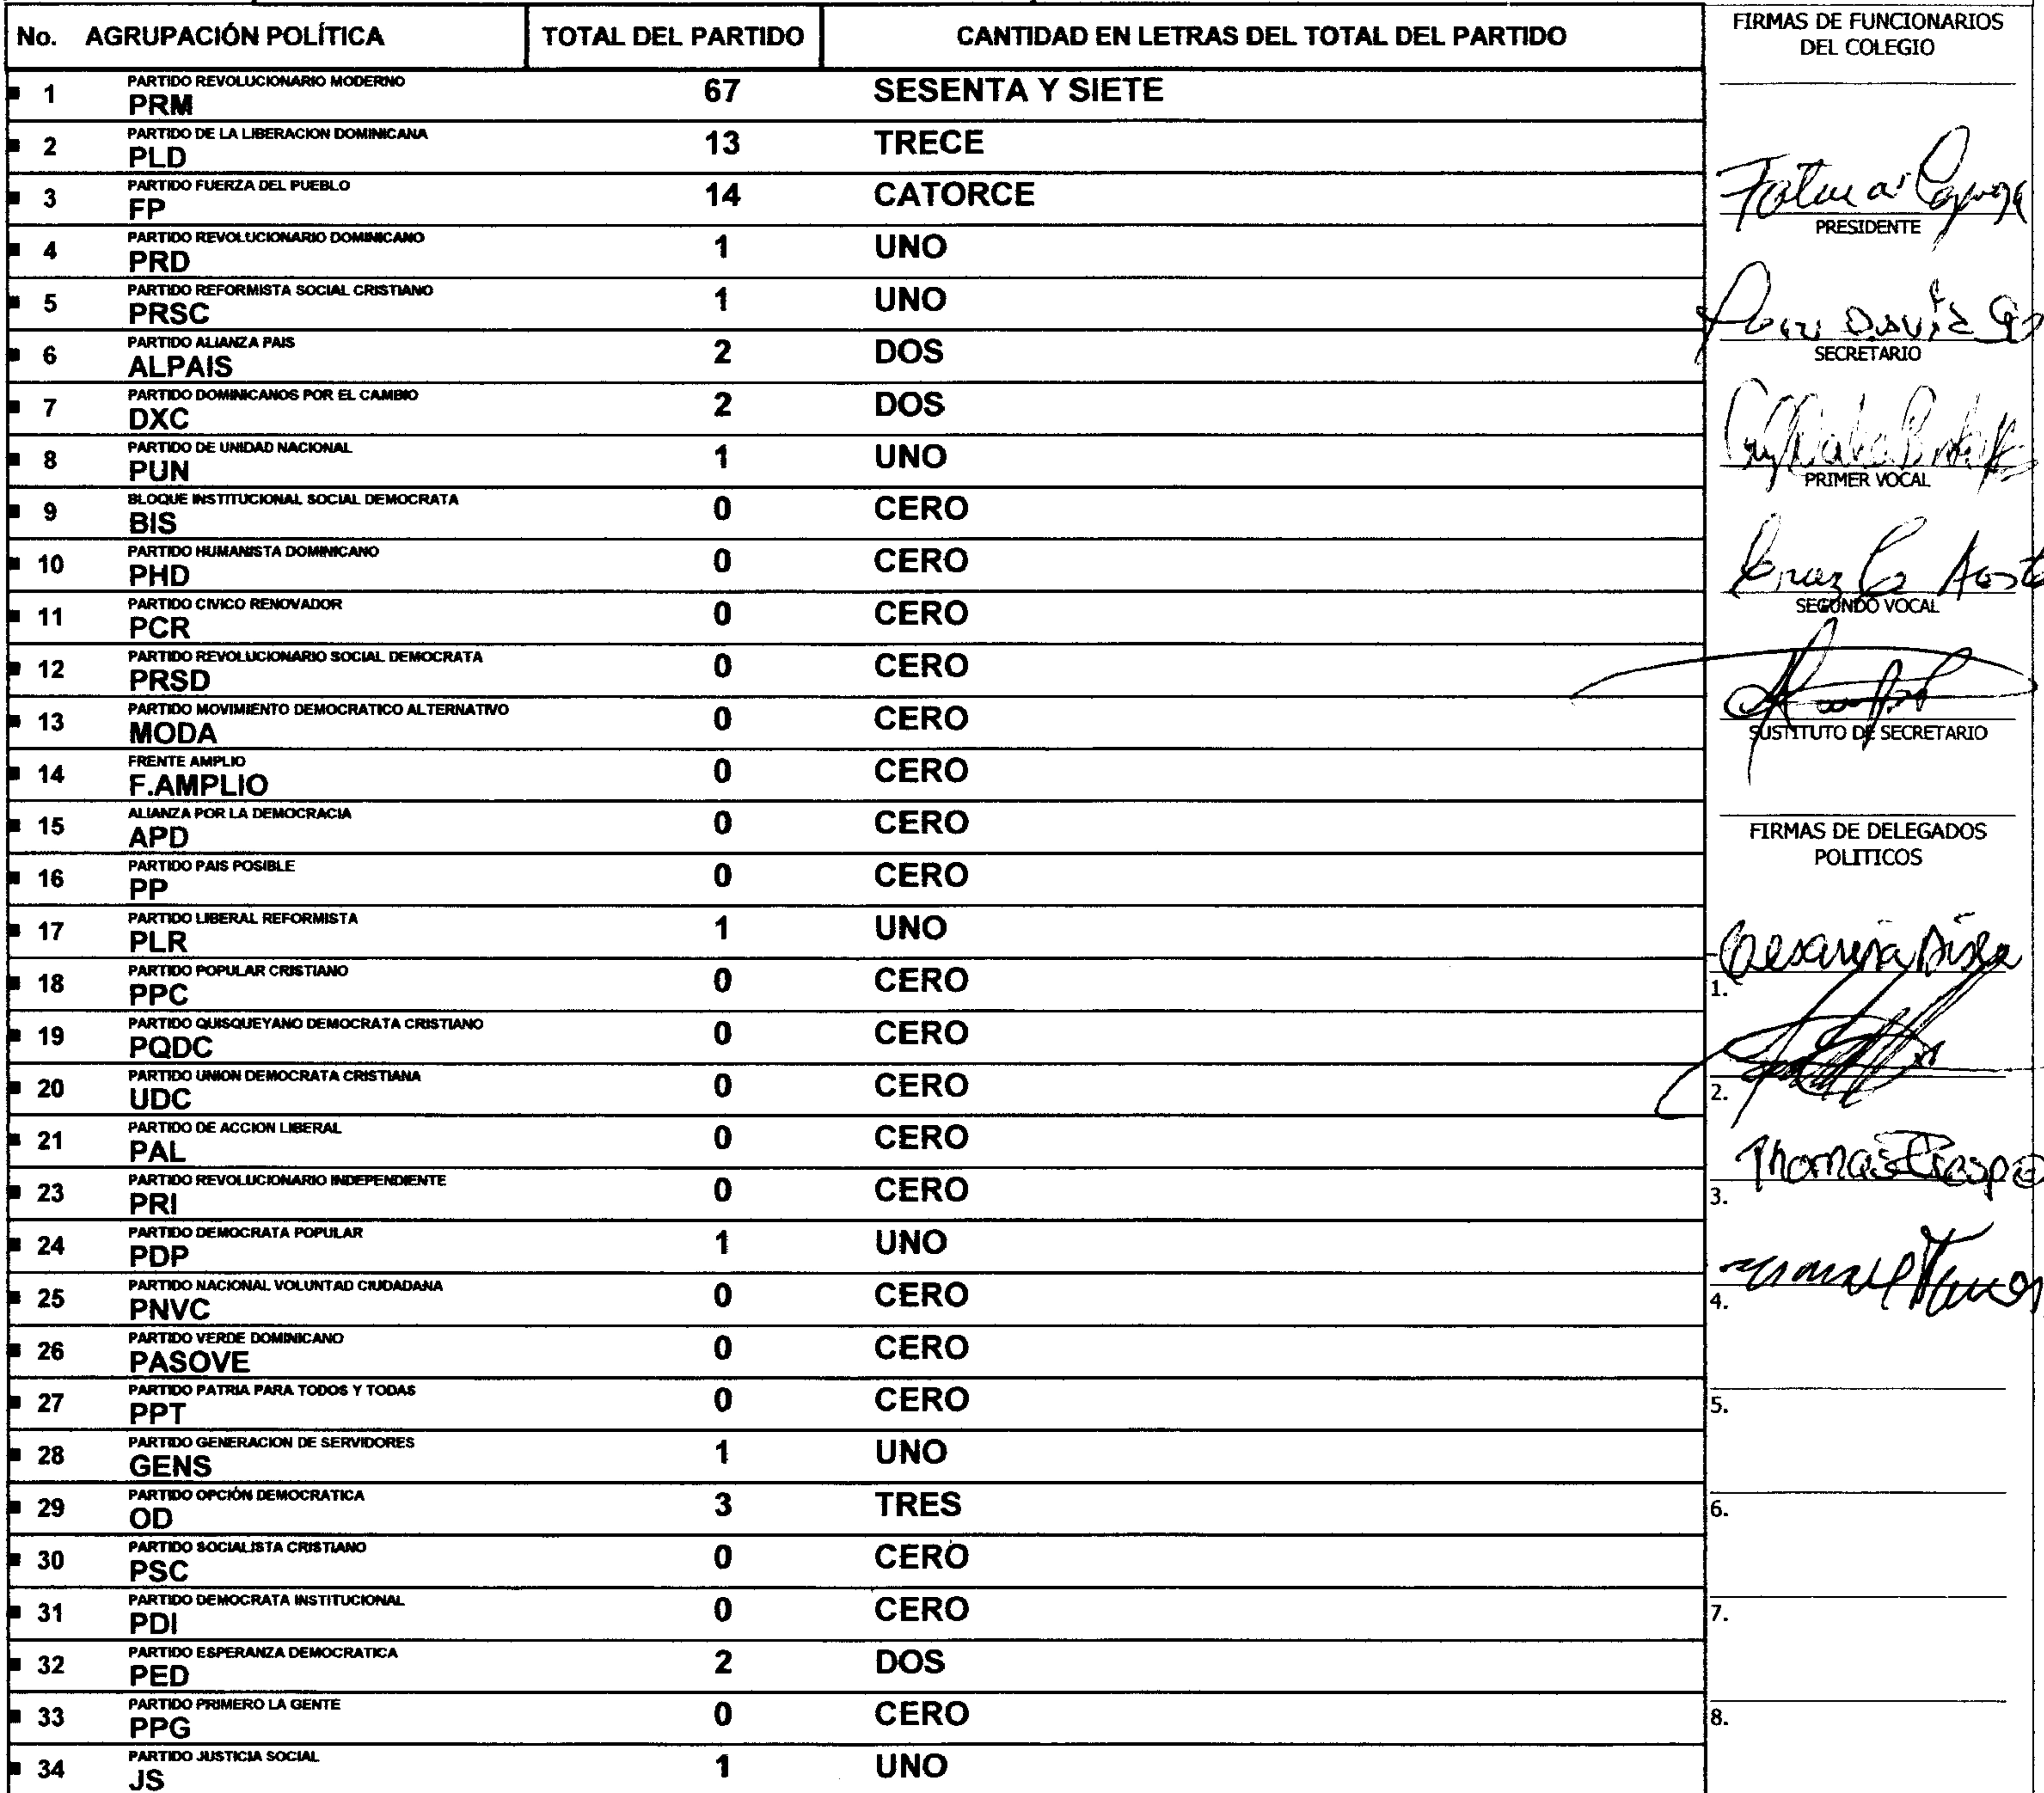 No. AGRUPACIÓN POLÍTICA TOTAL DEL PARTIDO CANTIDAD EN LETRAS DEL TOTAL DEL PARTIDO
PARTIDO REVOLUCIONARIO MODERNO
1 PRM 67 SESENTA Y SIETE
PARTIDO DE LA LIBERACION DOMINICANA
2 PLD 13 TRECE
PARTIDO FUERZA DEL PUEBLO
3 FP 14 CATORCE
PARTIDO REVOLUCIONARIO DOMINICANO
4 PRD 1 UNO
PARTIDO REFORMISTA SOCIAL CRISTIANO
5 PRSC 1 UNO
PARTIDO ALIANZA PAIS
6 ALPAIS 2 DOS
PARTIDO DOMINICANOS POR EL CAMBIO
7 DXC 2 DOS
PARTIDO DE UNIDAD NACIONAL
8 PUN 1 UNO
BLOQUE INSTITUCIONAL SOCIAL DEMOCRATA
9 BIS 0 CERO
PARTIDO HUMANISTA DOMINICANO
10 PHD 0 CERO
PARTIDO CIVICO RENOVADOR
11 PCR 0 CERO
PARTIDO REVOLUCIONARIO SOCIAL DEMOCRATA
12 PRSD 0 CERO
PARTIDO MOVIMIENTO DEMOCRATICO ALTERNATIVO
13 MODA 0 CERO
FRENTE AMPLIO
14 F.AMPLIO 0 CERO
ALIANZA POR LA DEMOCRACIA
15 APD 0 CERO
PARTIDO PAIS POSIBLE
16 PP 0 CERO
PARTIDO LIBERAL REFORMISTA
17 PLR 1 UNO
PARTIDO POPULAR CRISTIANO
18 PPC 0 CERO
PARTIDO QUISQUEYANO DEMOCRATA CRISTIANO
19 PQDC 0 CERO
PARTIDO UNION DEMOCRATA CRISTIANA
20 UDC 0 CERO
PARTIDO DE ACCION LIBERAL
21 PAL 0 CERO
PARTIDO REVOLUCIONARIO INDEPENDIENTE
23 PRI 0 CERO
PARTIDO DEMOCRATA POPULAR
24 PDP 1 UNO
PARTIDO NACIONAL VOLUNTAD CIUDADANA
25 PNVC 0 CERO
PARTIDO VERDE DOMINICANO
26 PASOVE 0 CERO
PARTIDO PATRIA PARA TODOS Y TODAS
27 PPT 0 CERO
PARTIDO GENERACION DE SERVIDORES
28 GENS 1 UNO
PARTIDO OPCIÓN DEMOCRATICA
29 OD 3 TRES
PARTIDO SOCIALISTA CRISTIANO
30 PSC 0 CERO
PARTIDO DEMOCRATA INSTITUCIONAL
31 PDI 0 CERO
PARTIDO ESPERANZA DEMOCRATICA
32 PED 2 DOS
PARTIDO PRIMERO LA GENTE
33 PPG 0 CERO
PARTIDO JUSTICIA SOCIAL
34 JS 1 UNO
FIRMAS DE FUNCIONARIOS
DEL COLEGIO
PRESIDENTE
David
SECRETARIO
PRIMER VOCAL
SEGUNDO VOCAL
SUSTITUTO DE SECRETARIO
FIRMAS DE DELEGADOS
POLITICOS
1.
2.
3. Thomas
4.
5.
6.
7.
8.